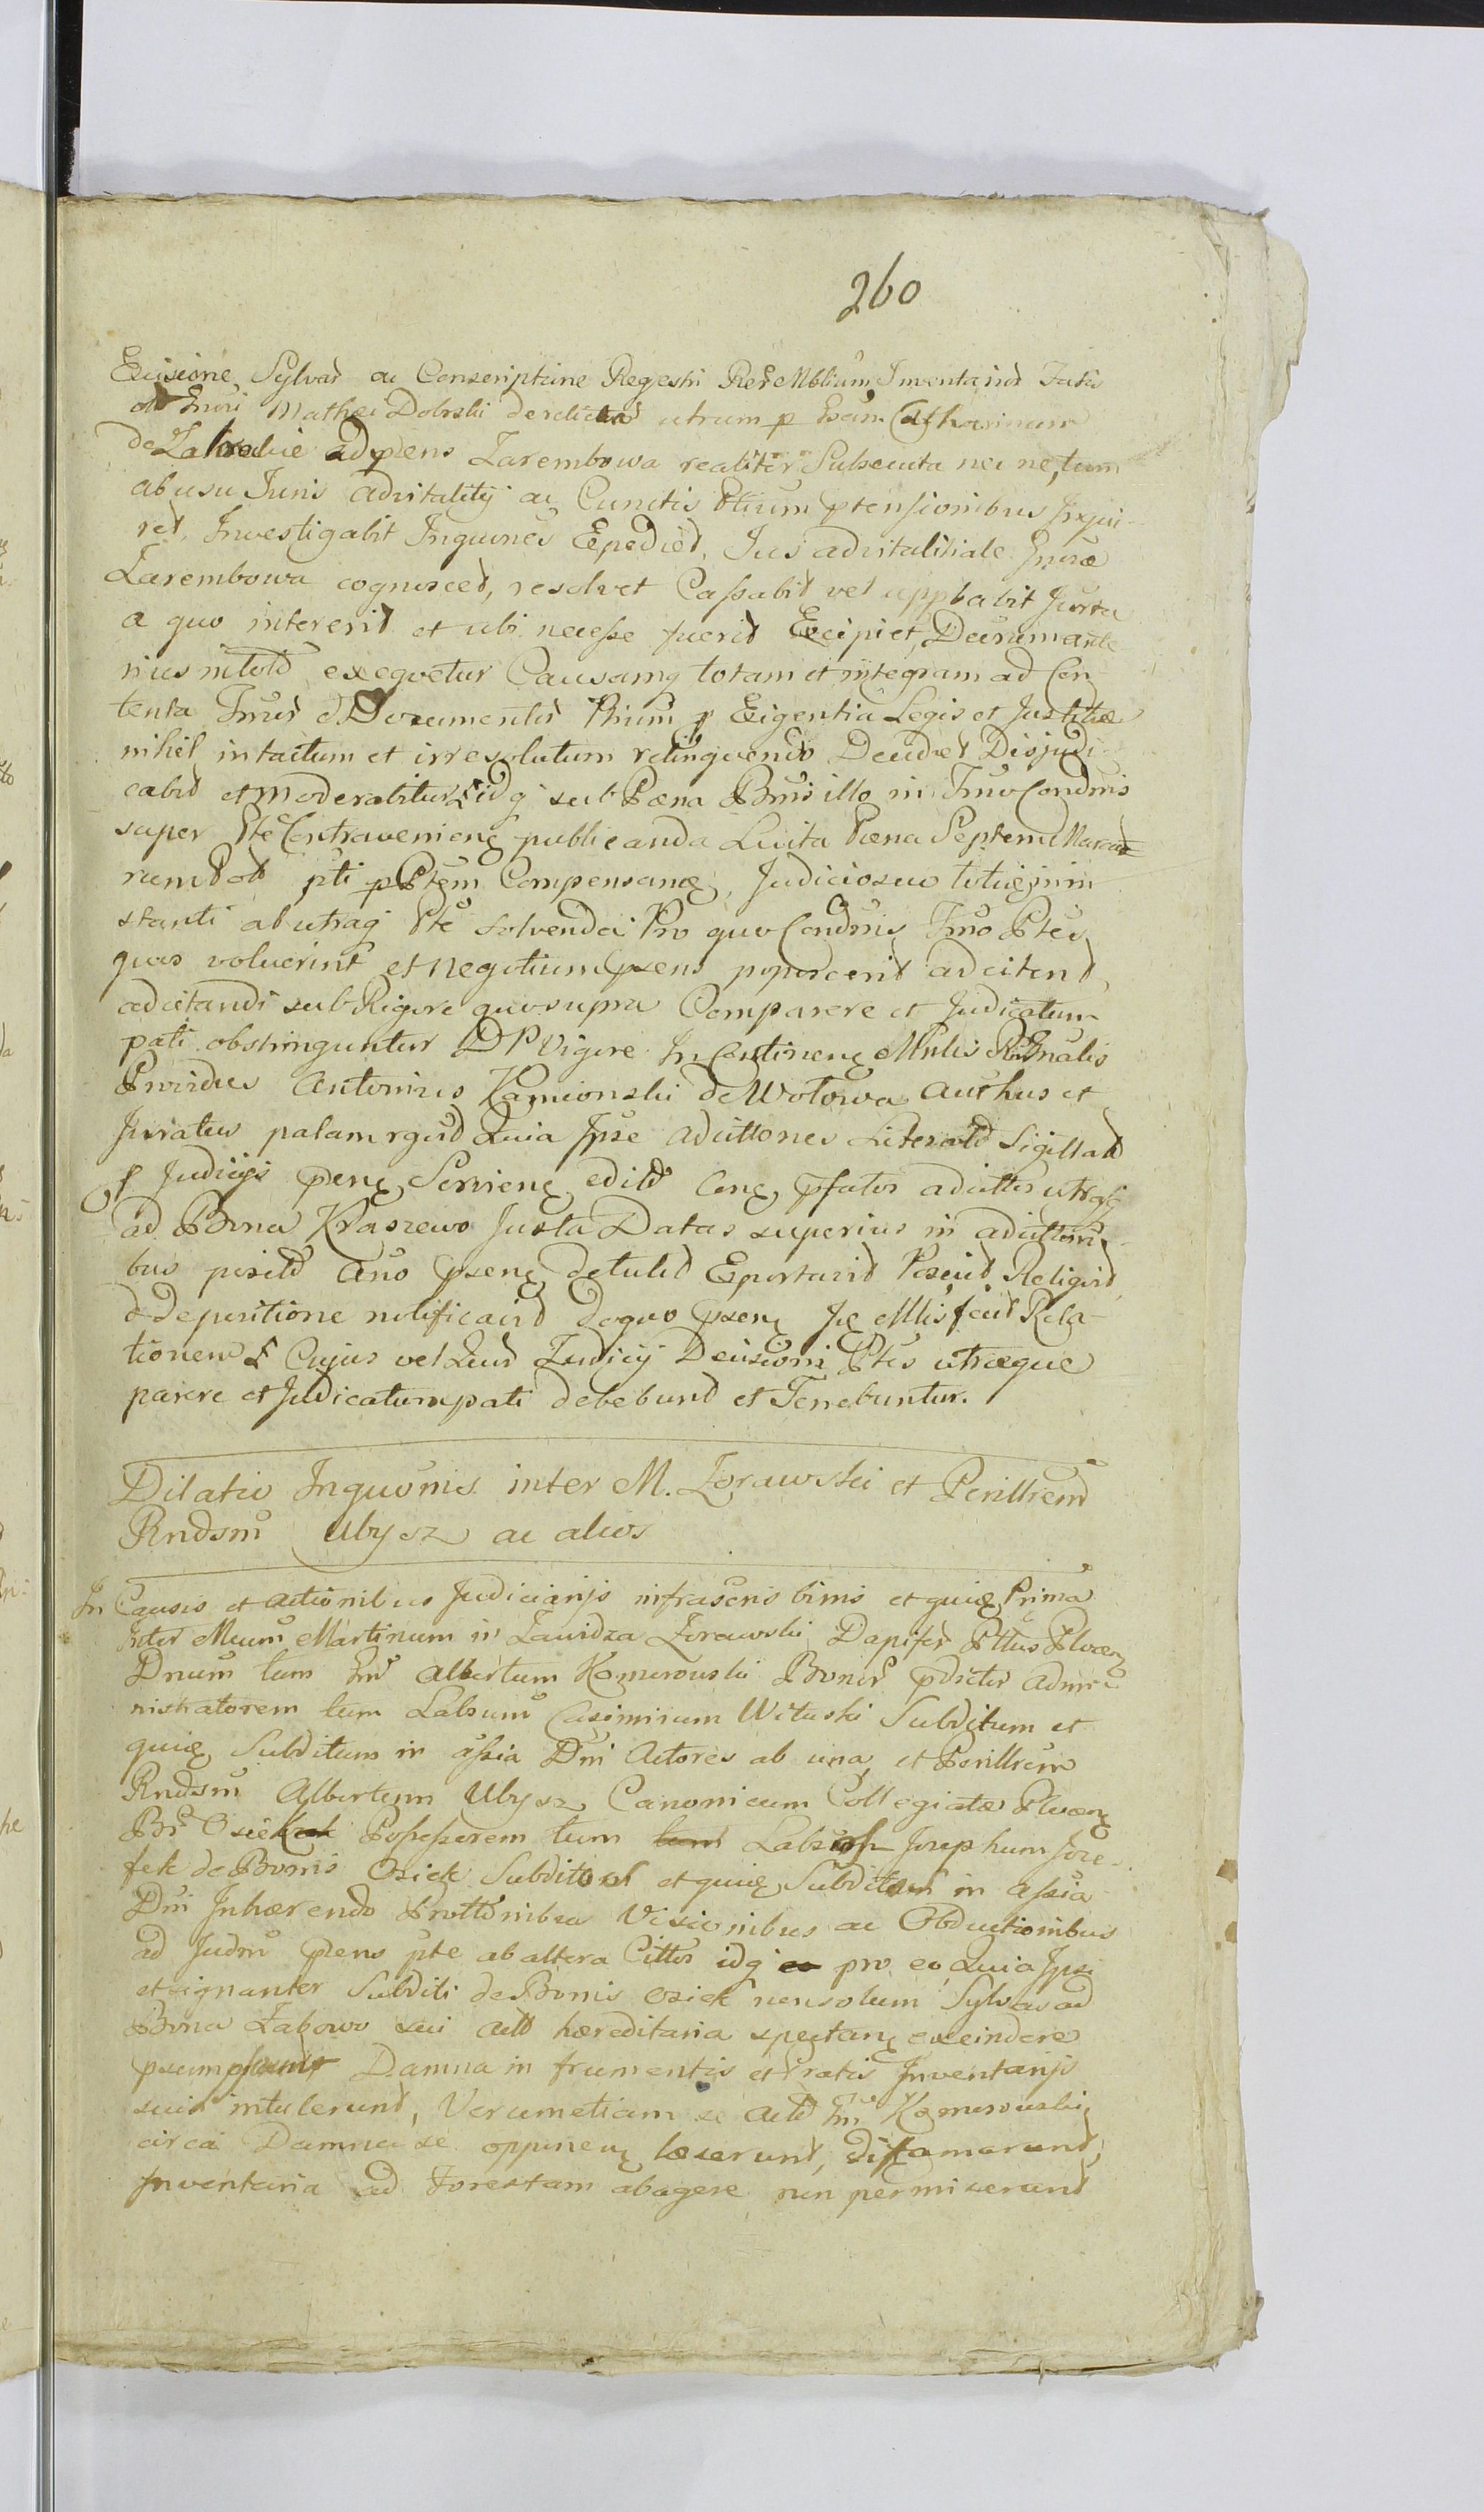 260
Excisione Sylvar ac Conscriptione Regestri Rer Mblium Inventarior Fatis
olt Gnosi Mathei Dobrski derelictar utrum p Gsam Catharinam
de Zakrzewie adpsens Zarembowa realiter Subsecuta nec ne, tum
ab usu Juris advitalitij ac Cunctis Ptium ptensionibus Inqui-
ret, Investigabit Inquones Expediet, Jus advitalitiale Gnosæ
Zarembowa cognoscet, resolvet Cassabit vel appbabit Juxta
a quo intererit et ubi necesse fuerit Excipiet, Decrum ante
rius exeqvetur Causamq totam et integram ad Con
tenta Tmus Documentis Ptium p Exigentia Legis et Justitiæ
nihil intactum et irresolutum relinqvendo Decidet Disjudi
cabit et Moderabitur idq sub Pæna Bnis illo in Tmo Condnis
super Pte Contravenienę publicanda Luita Pæna Septem Marca
rum Pol pti ptem Compensanę, Judicioseo totię inin
stanti ab utraq Pte Solvenda Pro quo Condnis Tmo Ptes
quas voluerint et Negotium psens poposcerit adcitent
adcitandi sub Rigore quo supra Comparere et Judicatum
pati obstringuntur D P Vigore In Continenę Mnlis
Providus Antonius Kamionski de Wołowa authus et
Juratus palam rgvit Quia Ipse adcittones Literat Sigillat
p Judicijs psenę Servienę edit Cenę pfatos adcittos utrasq
ad Bona Kraszewo Juxta Datas superius in adcittoni
bus posit Ano psenę detulit Exportavit Posuit Religvit
d depositione notificavit Deqvo psenę Je Mis fecit Rela-
tionem Cujus vel Judicij Decisioni Ptes utræque
parere et Judicatum pati debebunt et Tenebuntur.
Dilatio Inquonis inter M. Zorawski et Perillrem
Rndsm Ubysz ac alios
In Causis et actionibus Judiciarijs infrascris binis et quię Prima
Inter Mcum Martinum in Zawidza Zorawski Dapifer Pltus Plocen
Dnum tum Gn Albertum Komorouski Bonor pdictor admi
nistratorem tum Labsum Casimirum Wituski Subditum et
quię Subditum in assia Dni Actores ab una, et Perillrem
Rndsm Albertum Ubysz Canonicum Collegiatæ Plocenę
Br Osiek Possessorem tum Labsum Josephum Joze-
fek de Bonis Osiek Subditos et quię Subditum in assia
Dni Inhærendo Prottonibus Visionibus ac Obductionibus
ad Judm psens pte ab altera Cittos idq pro eo, Quia Ipsi
et signanter Subditi de Bonis Osiek nonsolum Sylvas ad
Bona Łabowo sui Act hæreditaria spectanę exscindere
psumpserunt Damna in frumentis et Pratis Inventarijs
suis intulerunt, Verumetiam se Act Gn Komorouski
circa Damna se opponenę læserunt, diffamarunt,
Inventaria ad Forestam abagere non permiserunt